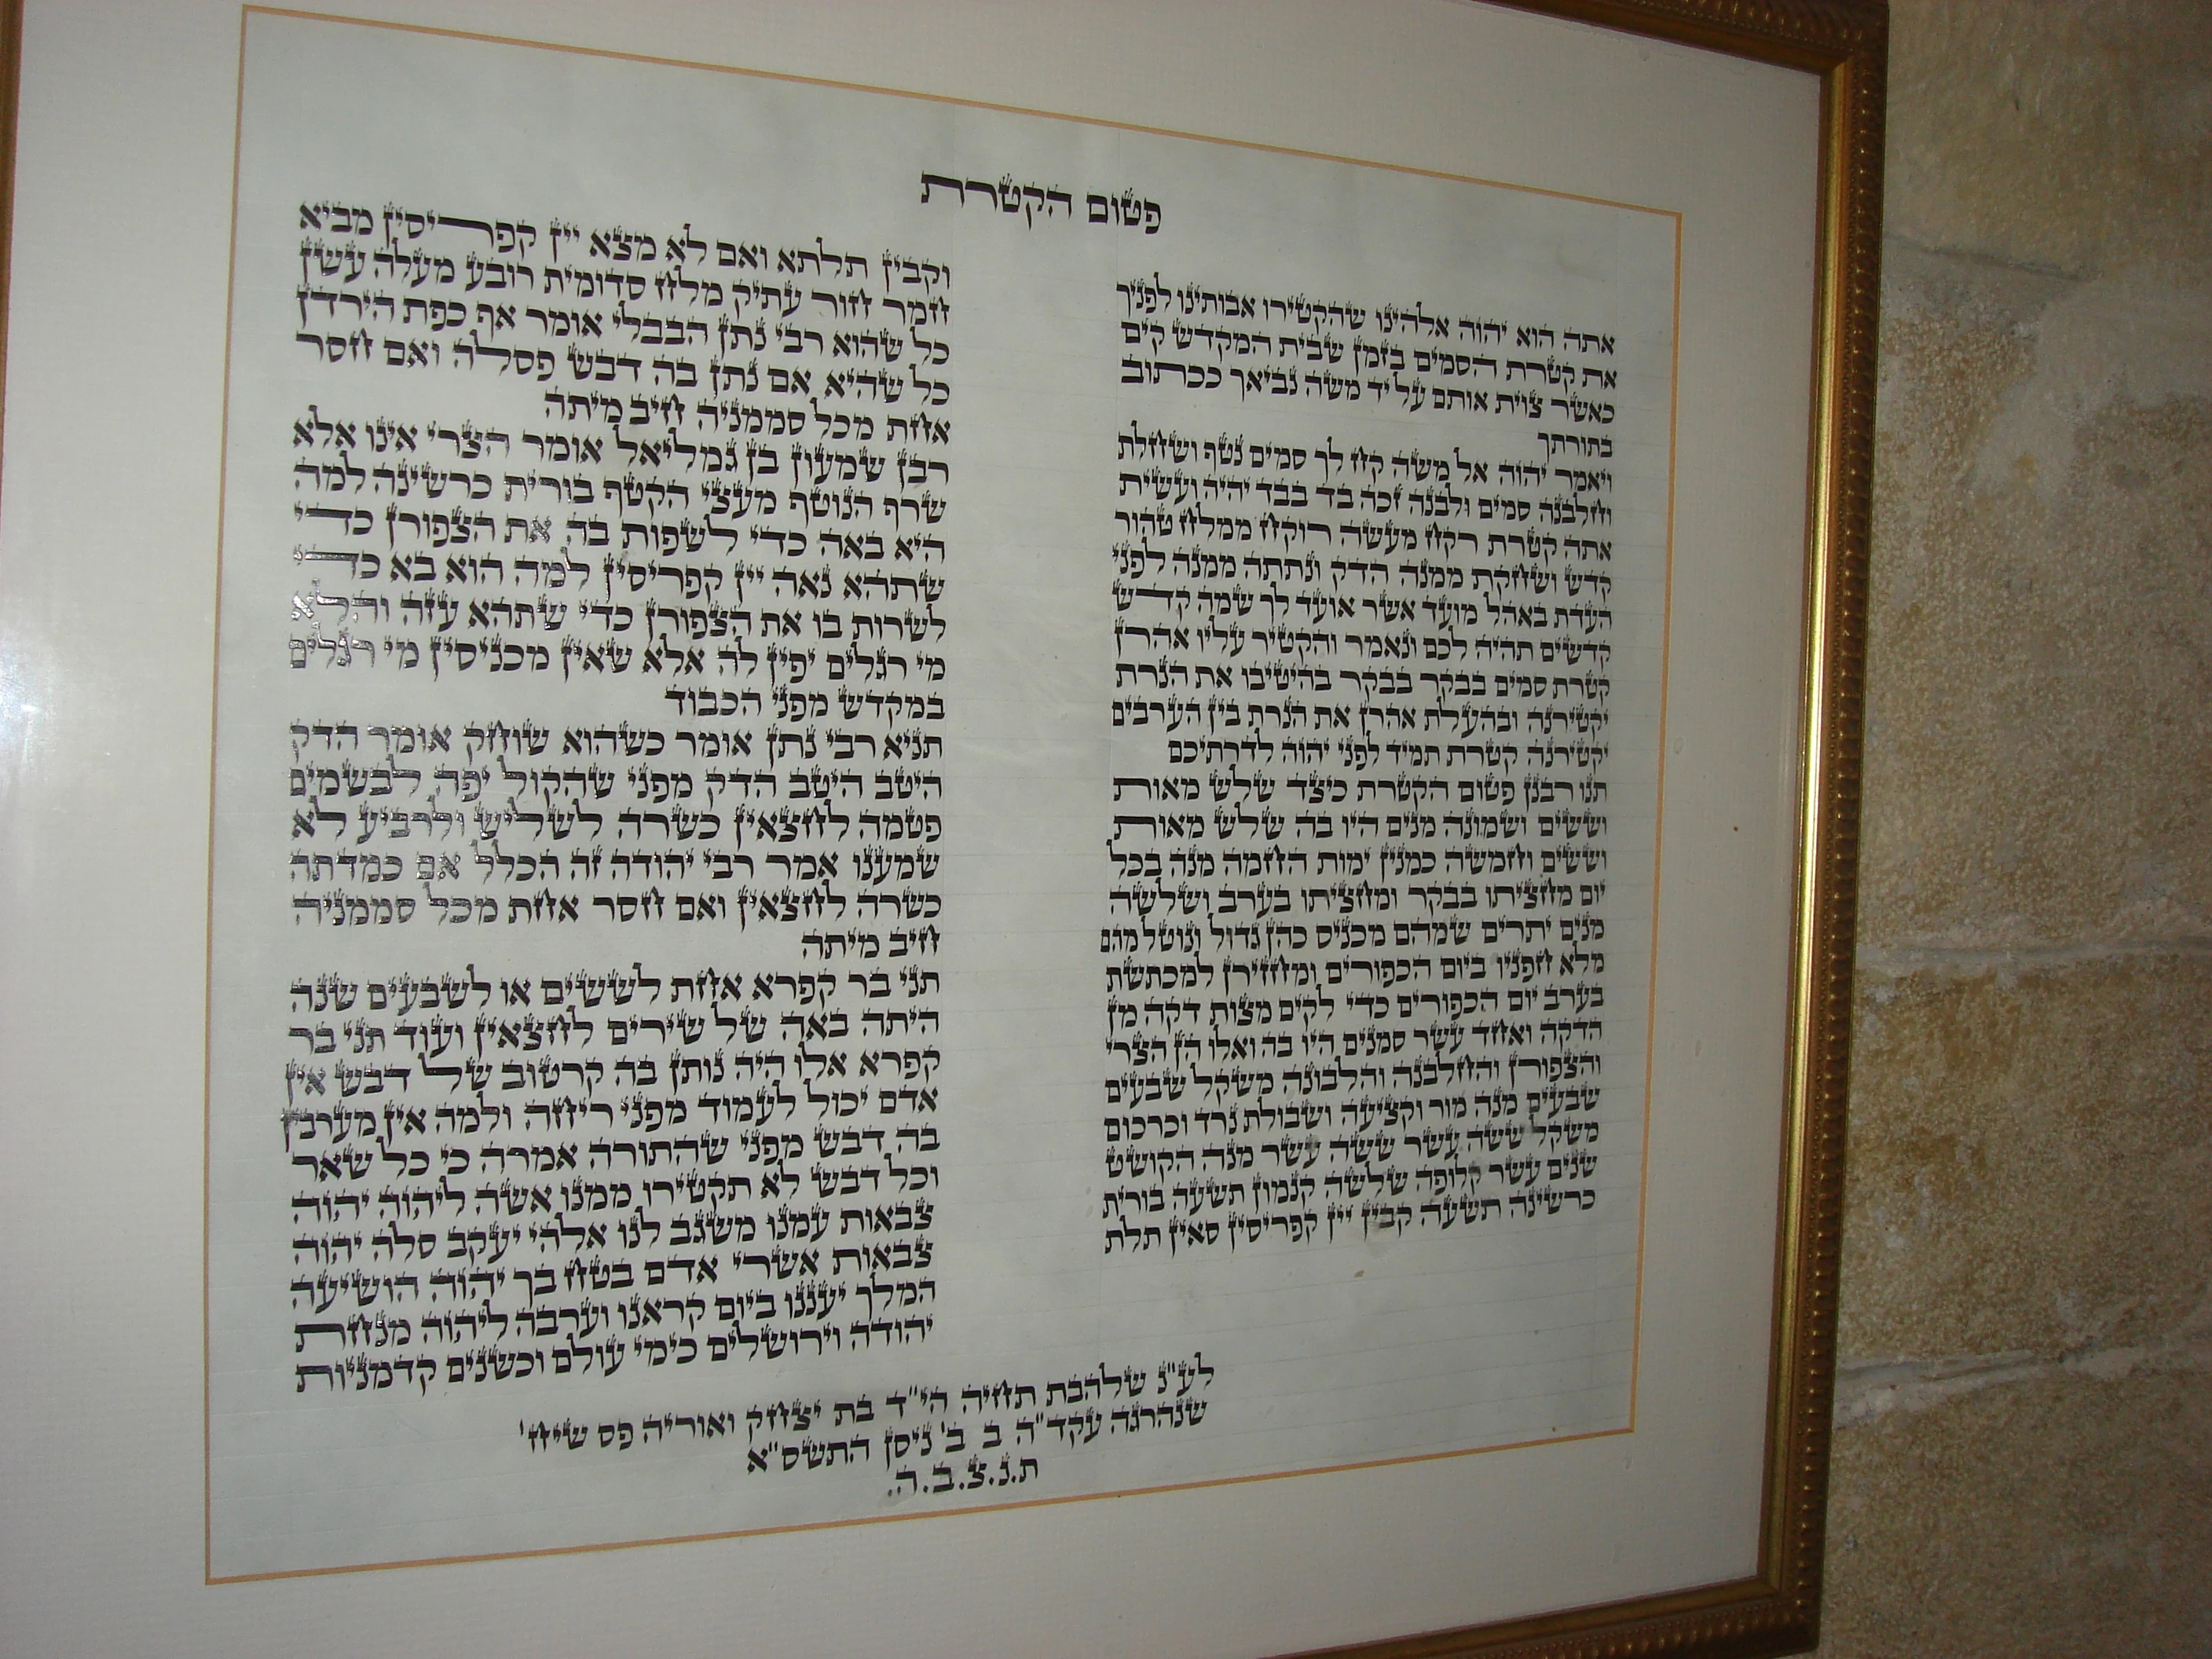 פטום הקטרת
אתה הוא יהוה אלהינו שהקטירו אבותינו לפניך
את קטרת הסמים בזמן שבית המקדש קים
כאשר צוית אותם על יד משה נביאך ככתוב
בתורתך
ויאמר יהוה אל משה קח לך סמים נטף ושחלת
וחלבנה סמים ולבנה זכה בד בבד יהיה ועשית
אתה קטרת רקח מעשה רוקח ממלח טהור
קדש ושחקת ממנה הדק ונתתה ממנה לפני
העדת באהל מועד אשר אועד לך שמה קדש
קדשים תהיה לכם ונאמר והקטיר עליו אהרן
קטרת סמים בבקר בבקר בהיטיבו את הנרת
יקטירנה ובהעלת אהרן את הנרת בין הערבים
יקטירנה קטרת תמיד לפני יהוה לדרתיכם
תנו רבנן פטום הקטרת כיצד שלש מאות
וששים ושמונה מנים היו בה שלש מאות
וששים וחמשה כמנין ימות החמה מנה בכל
יום מחציתו בבקר ומחציתו בערב ושלשה
מנים יתרים שמהם מכניס כהן גדול ונוטל מהם
מלא חפניו ביום הכפורים ומחזירן למכתשת
בערב יום הכפורים כדי לקים מצות דקה מן
הדקה ואחד עשר סמנים היו בה ואלו הן הצרי
והצפורן והחלבנה והלבונה משקל שבעים
שבעים מנה מור וקציעה ושבולת נרד וכרכום
משקל ששה עשר ששה עשר מנה הקושט
שנים עשר קלופה שלשה קנמון תשעה בורית
כרשינה תשעה קבין יין קפריסין סאין תלת
וקבין תלתא ואם לא מצא יין קפריסין מביא
חמר חור עתיק מלח סדומית רובע מעלה עשן
כל שהוא רבי נתן הבבלי אומר אף כפת הירדן
כל שהיא אם נתן בה דבש פסלה ואם חסר
אחת מכל סממניה חיב מיתה
רבן שמעון בן גמליאל אומר הצרי אינו אלא
שרף הנוטף מעצי הקטף בורית כרשינה למה
היא באה כדי לשפות בה את הצפורן כדי
שתהא נאה יין קפריסין למה הוא בא כדי
לשרות בו את הצפורן כדי שתהא עזה והלא
מי רגלים יפין לה אלא שאין מכניסין מי רגלים
במקדש מפני הכבוד
תניא רבי נתן אומר כשהוא שוחק אומר הדק
היטב היטב הדק מפני שהקול יפה לבשמים
פטמה לחצאין כשרה לשליש ולרביע לא
שמענו אמר רבי יהודה זה הכלל אם כמדתה
כשרה לחצאין ואם חסר אחת מכל סממניה
חיב מיתה
תני בר קפרא אחת לששים או לשבעים שנה
היתה באה של שירים לחצאין ועוד תני בר
קפרא אלו היה נותן בה קרטוב של דבש אין
אדם יכול לעמוד מפני ריחה ולמה אין מערבין
בה דבש מפני שהתורה אמרה כי כל שאר
וכל דבש לא תקטירו ממנו אשה ליהוה יהוה
צבאות עמנו משגב לנו אלהי יעקב סלה יהוה
צבאות אשרי אדם בטח בך יהוה הושיעה
המלך יעננו ביום קראנו וערבה ליהוה מנחת
יהודה וירושלים כימי עולם וכשנים קדמניות
לע"נ שלהבת תחיה הי"ד בת יצחק ואוריה פס שיח'
שנהרגה עקד"ה ב ב' ניסן התשס"א
ת.נ.צ.ב.ה.